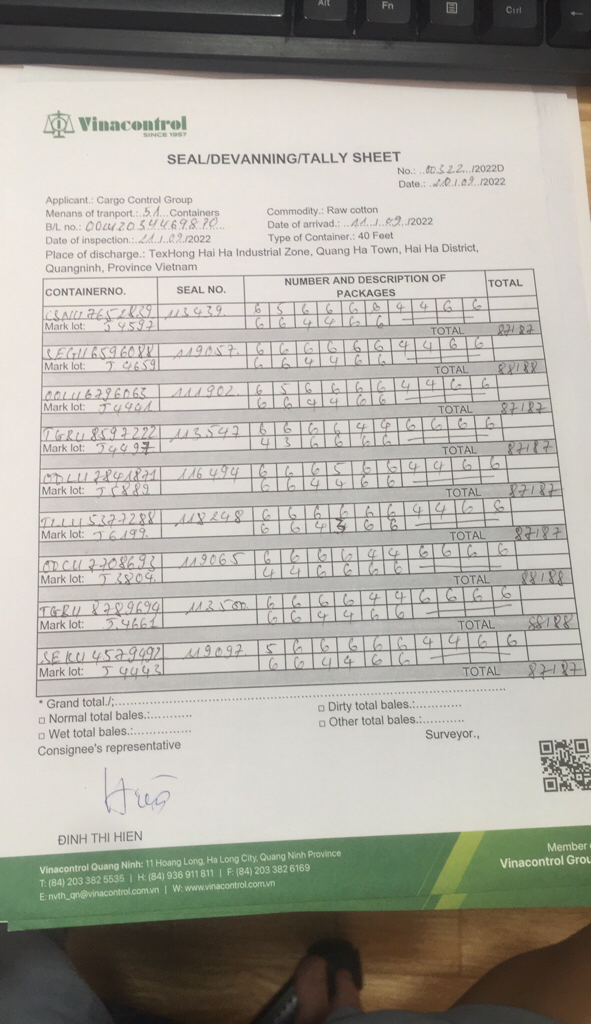 Alt
Fn
Ctrl
Vinacontrol
SINCE 1957
SEAL/DEVANNING/TALLY SHEET
No.: 00322 /2022D
Date.: 20/09 /2022
Applicant.: Cargo Control Group
Menans of tranport.: 51 Containers
Commodity.: Raw cotton
B/L no.:
Date of arrivad.: 11/09 /2022
Date of inspection.: 21/09/2022
Type of Container.: 40 Feet
Place of discharge.: TexHong Hai Ha Industrial Zone, Quang Ha Town, Hai Ha District,
Quangninh, Province Vietnam
CONTAINERNO. SEAL NO. NUMBER AND DESCRIPTION OF PACKAGES TOTAL
CSNU7652839 113439 6 5 6 6 6 6 4 4 6 6
Mark lot: J4597 6 6 4 4 6 6
TOTAL 87/87
SEGU6596088 119057 6 6 6 6 6 6 4 4 6 6
Mark lot: J4659 6 6 4 4 6 6
TOTAL 88/88
OOLU6796063 111902 6 5 6 6 6 6 4 4 6 6
Mark lot: J4441 6 6 4 4 6 6
TOTAL 87/87
TGBU8597222 113547 6 6 6 6 4 4 6 6 6 6
Mark lot: J4497 4 3 6 6 6 6
TOTAL 87/87
116494 6 6 6 5 6 6 4 4 6 6
Mark lot: J5889 6 6 4 4 6 6
TOTAL 87/87
118248 6 6 6 6 6 6 4 4 6 6
Mark lot: J6199 6 6 4 3 6 6
TOTAL 87/87
119065 6 6 6 6 4 4 6 6 6 6
Mark lot: J3804 4 4 6 6 6 6
TOTAL 88/88
TGBU 8789694 113500 6 6 6 6 4 4 6 6 6 6
Mark lot: J4661 6 6 4 4 6 6
TOTAL 88/88
SEKU4579492 119097 5 6 6 6 6 6 4 4 6 6
Mark lot: J4443 6 6 4 4 6 6
TOTAL 87/87
* Grand total./:
□ Normal total bales.:
□ Dirty total bales.:
□ Wet total bales.:
□ Other total bales.:
Consignee's representative
Surveyor.,
ĐINH THI HIEN
Vinacontrol Quang Ninh: 11 Hoang Long, Ha Long City, Quang Ninh Province
T: (84) 203 382 5535 | H: (84) 936 911 811 | F: (84) 203 382 6169
E: nvth_qn@vinacontrol.com.vn | W: www.vinacontrol.com.vn
Member
Vinacontrol Grou